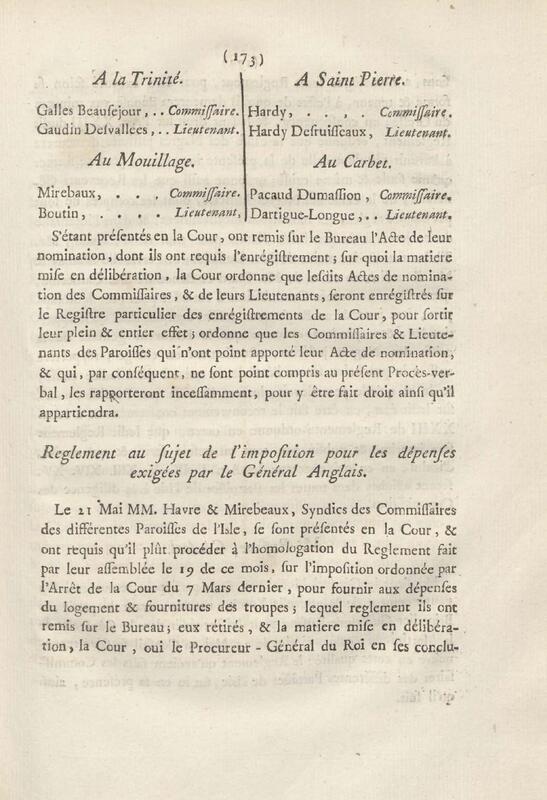 (173)
A la Trinité.
Galles Beausejour, .. Commissaire.
Gaudin Desvallées, .. Lieutenant.
Au Mouillage.
Mirebaux, . . , Commissaire.
Boutin, . . . . Lieutenant,
A Saint Pierre.
Hardy, . . . . Commissaire.
Hardy Desruisseaux, Lieutenant.
Au Carbet.
Pacaud Dumassion, Commissaire.
Dartigue-Longue, .. Lieutenant.
S'étant présentés en la Cour, ont remis sur le Bureau l'Acte de leur
nomination, dont ils ont requis l'enrégistrement; sur quoi la matiere
mise en délibération, la Cour ordonne que lesdits Actes de nomina-
tion des Commissaires, & de leurs Lieutenants, seront enrégistrés sur
le Registre particulier des enrégistrements de la Cour, pour sortir
leur plein & entier effet; ordonne que les Commissaires & Lieute-
nants des Paroisses qui n'ont point apporté leur Acte de nomination,
& qui, par conséquent, ne sont point compris au présent Procès-ver-
bal, les rapporteront incessamment, pour y être fait droit ainsi qu'il
appartiendra.
Reglement au sujet de l'imposition pour les dépenses
exigées par le Général Anglais.
Le 21 Mai MM. Havre & Mirebeaux, Syndics des Commissaires
des différentes Paroisses de l'Isle, se sont présentés en la Cour, &
ont requis qu'il plût procéder à l'homologation du Reglement fait
par leur assemblée le 19 de ce mois, sur l'imposition ordonnée par
l'Arrêt de la Cour du 7 Mars dernier, pour fournir aux dépenses
du logement & fournitures des troupes; lequel reglement ils ont
remis sur le Bureau; eux rétirés, & la matiere mise en délibéra-
tion, la Cour, oui le Procureur-Général du Roi en ses conclu-